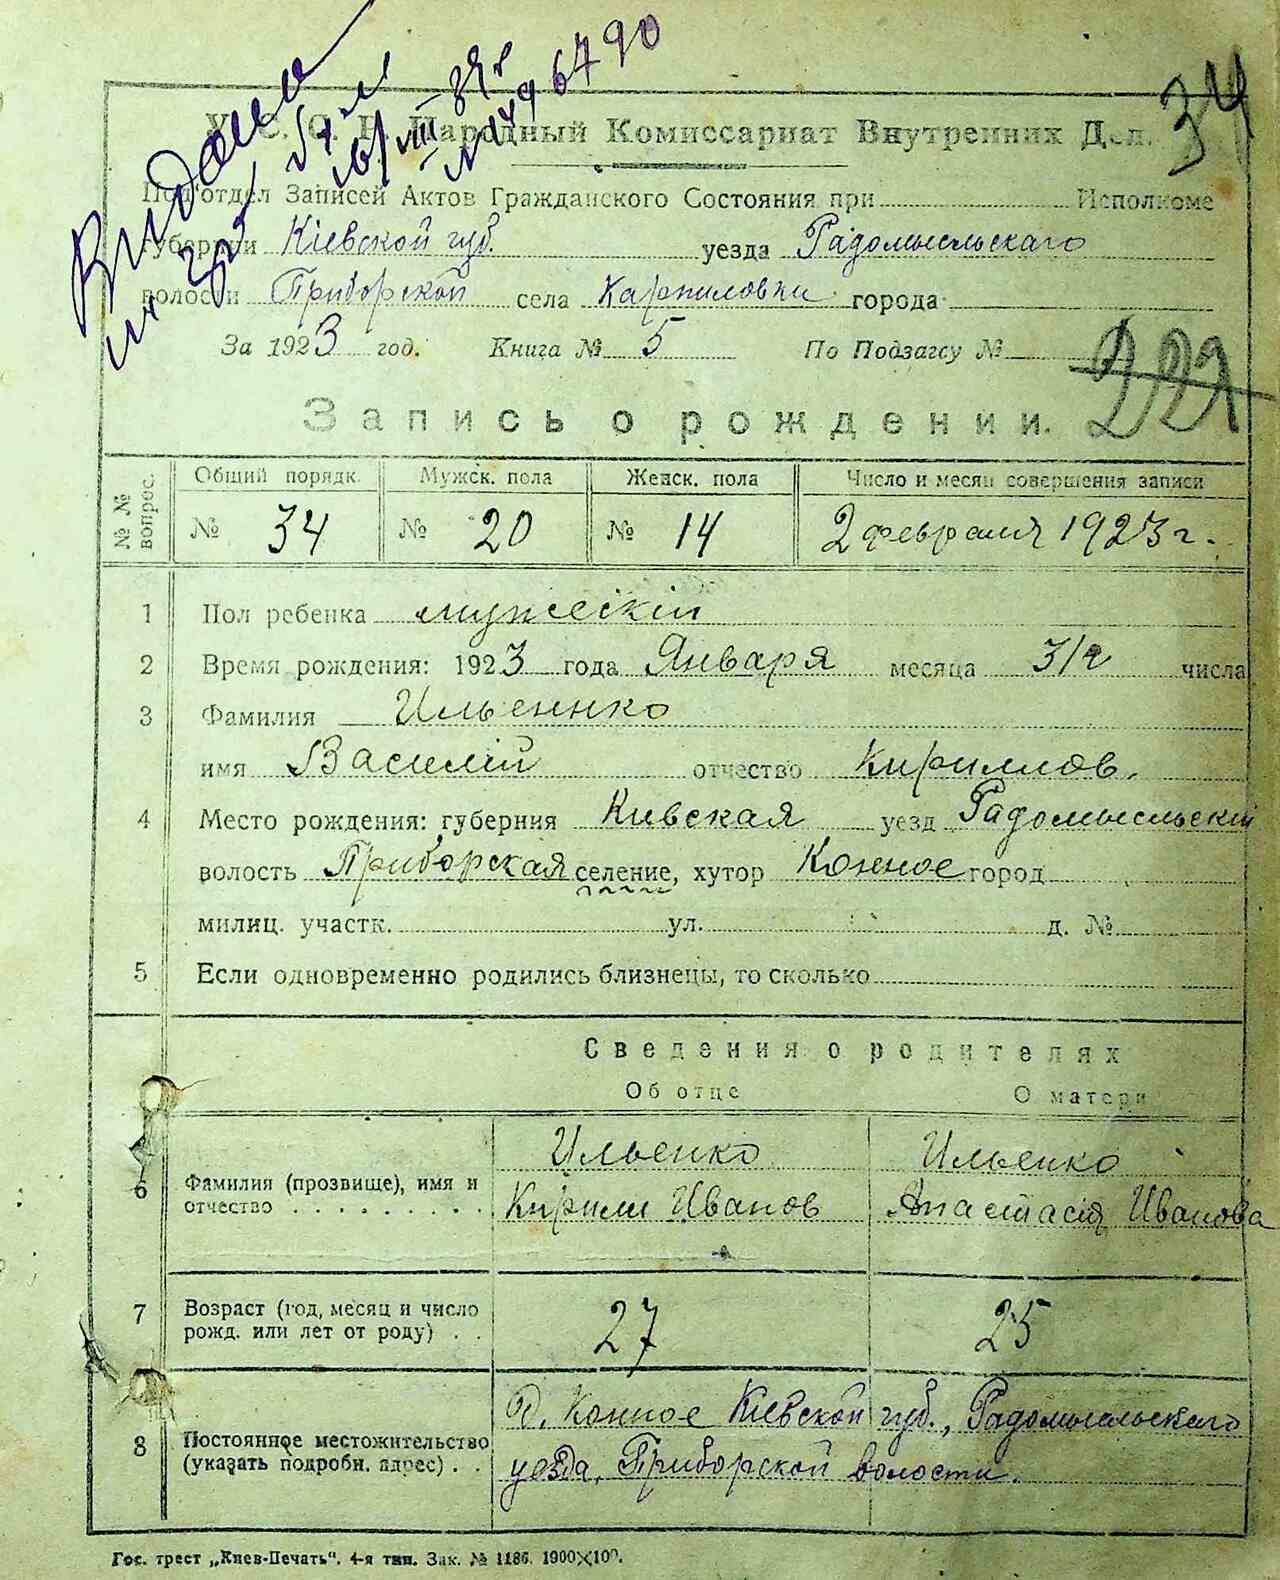 34
У. С. С. Р. Народный Комиссариат Внутренних Дел.
Под'отдел Записей Актов Гражданского Состояния при Исполкоме
губернии Кіевской губ. уезда Радомысльскаго
волости Приборской села Карпиловки города
За 1923 год. Книга № 5 По Подзагсу №
222
Запись о рождении.
№ № вопрос. Общий порядк. Мужск. пола Женск. пола Число и месяц совершения записи
№ 34 № 20 № 14 2 февраля 1923 г.
1 Пол ребенка мужескій
2 Время рождения: 1923 года Января месяца числа
3 Фамилия Ильеннко
имя Василій отчество Кириллов.
4 Место рождения: губерния Кивская уезд Радомысльскій
волость Приборская селение, хутор Конное город
милиц. участк. ул. д. №
5 Если одновременно родились близнецы, то сколько
Сведения о родителях
Об отце О матери
Ильенко Ильенко
6 Фамилия (прозвище), имя и отчество Кирилл Иванов Анастасія Иванова
7 Возраст (год, месяц и число рожд. или лет от роду) 27 25
8 Постоянное местожительство (указать подробн. адрес) д. Конное Кіевской губ., Радомысльскаго
уезда, Приборской волости.
Гос. трест „Киев-Печать“. 4-я тип. Зак. № 1186. 1900×100.